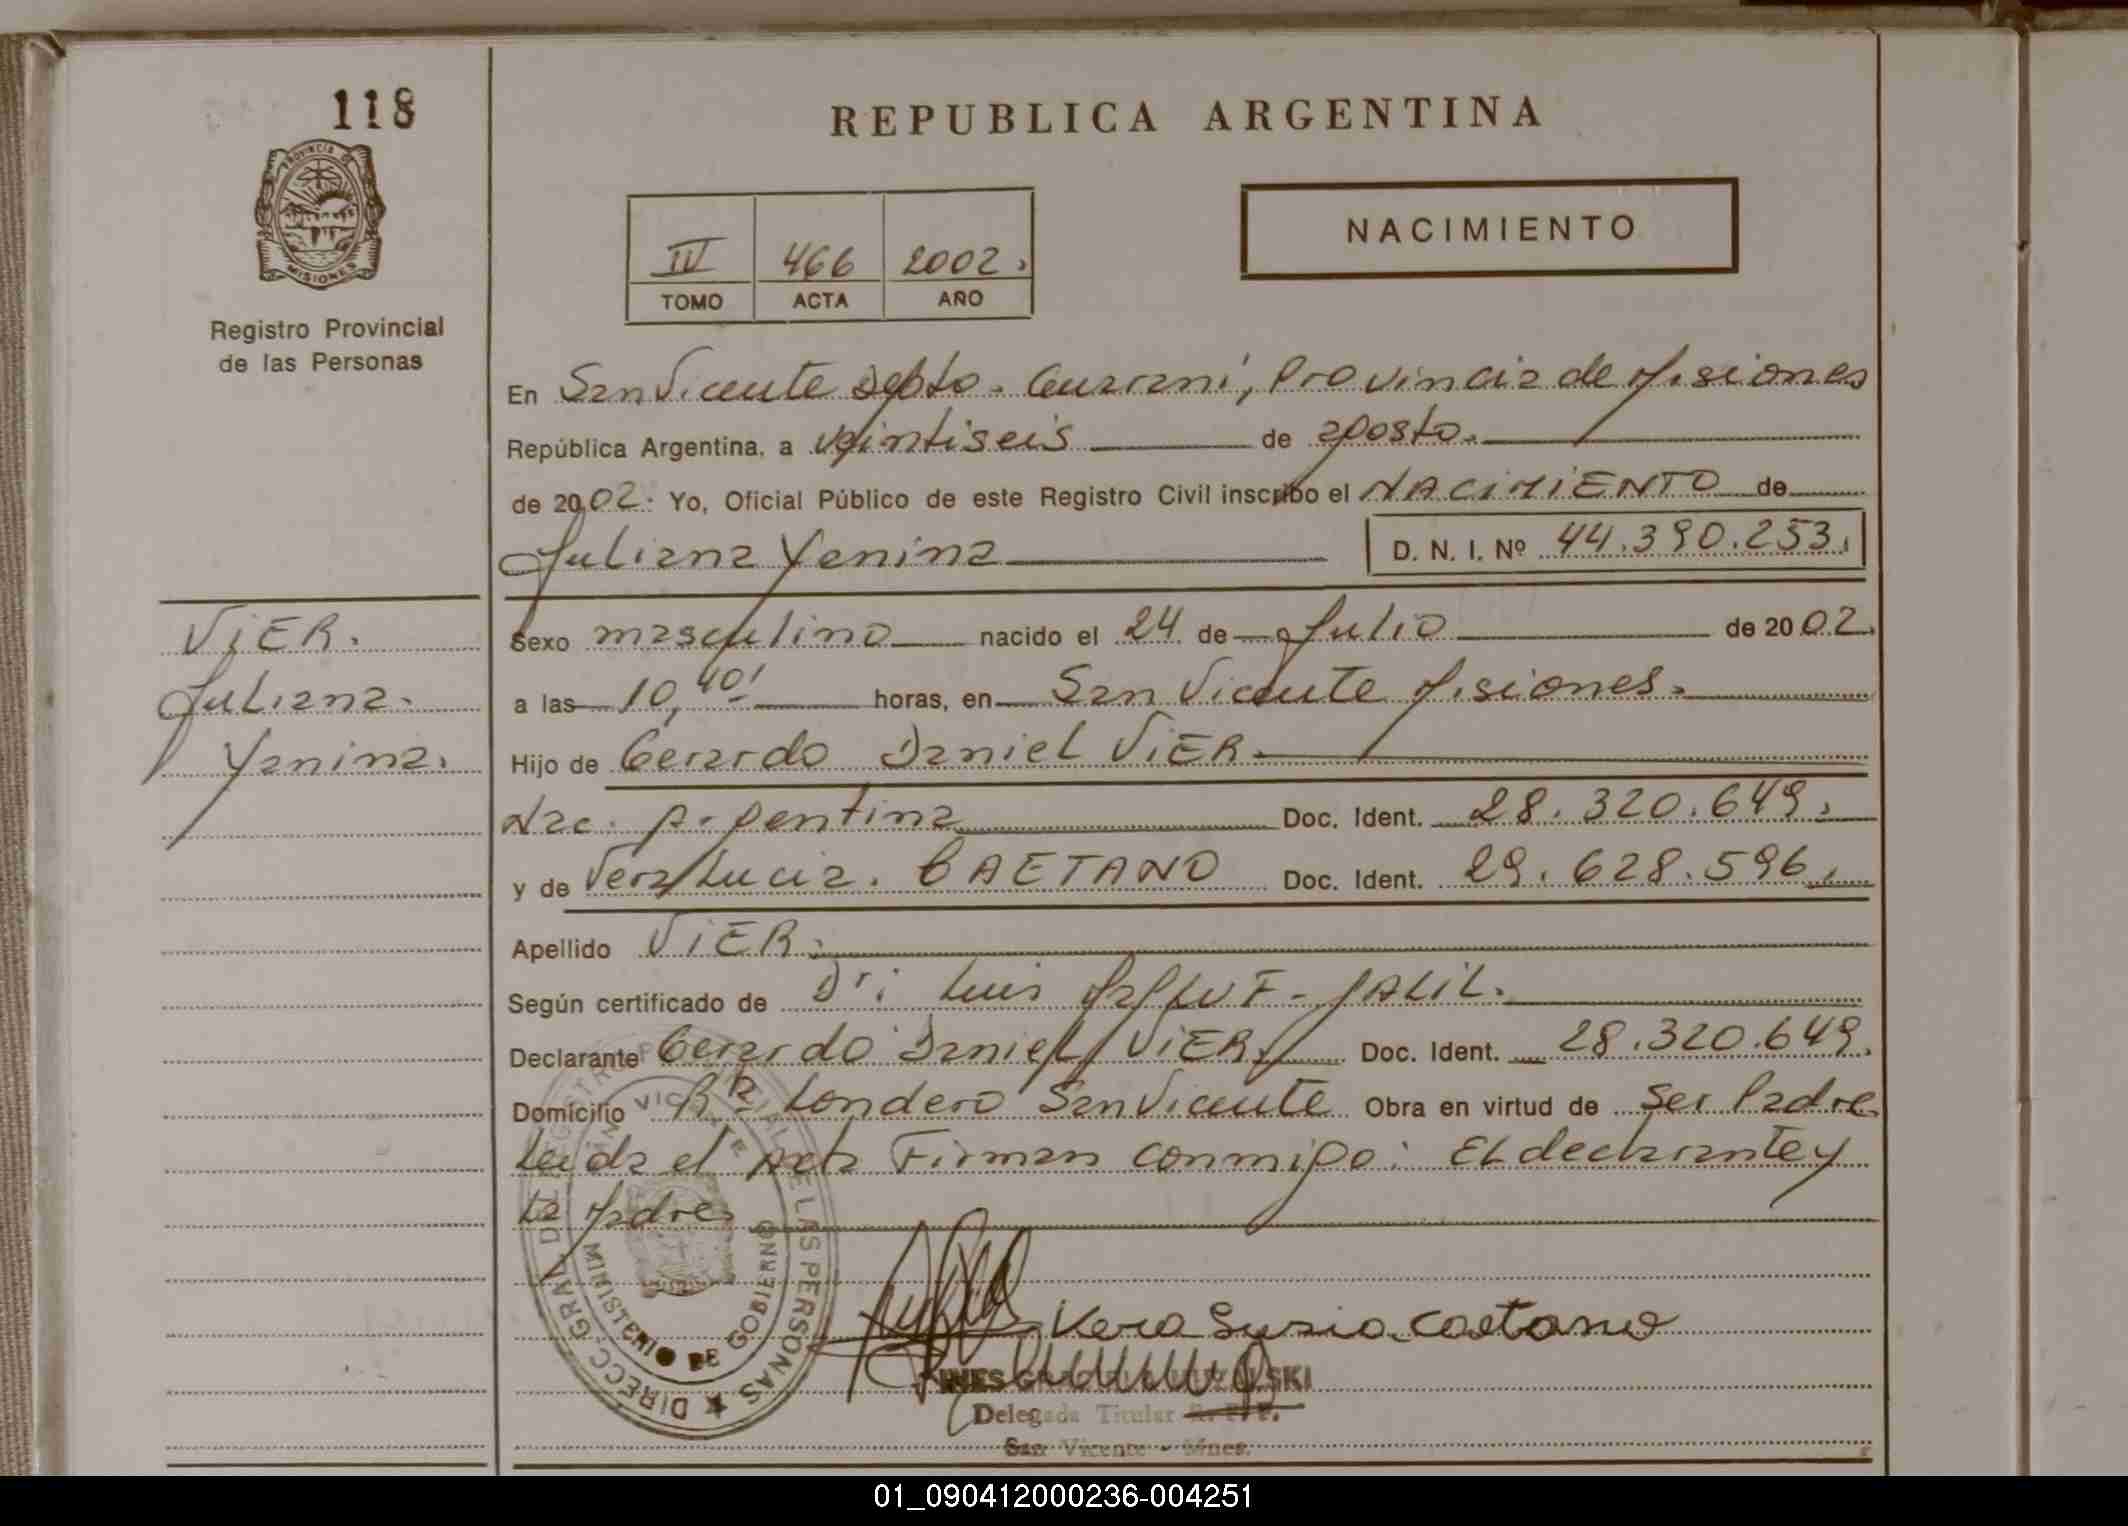 118
PROVINCIA DE
MISIONES
Registro Provincial
de las Personas
REPUBLICA ARGENTINA
IV 466 2002.
TOMO ACTA AÑO
NACIMIENTO
En San Vicente Depto. Guaraní, Provincia de Misiones
República Argentina, a veintiseis de agosto.
de 2002. Yo, Oficial Público de este Registro Civil inscribo el NACIMIENTO de
Juliana Yanina D. N. I. Nº 44.390.253.
VIER.
Juliana.
Yanina.
Sexo masculino nacido el 24 de Julio de 2002.
a las 10,40' horas, en San Vicente Misiones.
Hijo de Gerardo Daniel VIER.
Nac. Argentina Doc. Ident. 28.320.649.
y de Vera Lucia. CAETANO Doc. Ident. 29.628.596.
Apellido VIER.
Según certificado de Dr: Luis JALIL.
Declarante Gerardo Daniel VIER. Doc. Ident. 28.320.649.
Domicilio Bº Londero San Vicente Obra en virtud de Ser Padre
Leida el acta Firman conmigo: El declarante y
la Madre
DIRECC. GRAL. DEL REGISTRO PROVINCIAL DE LAS PERSONAS
SAN VICENTE
MINISTERIO DE GOBIERNO
Vera Lucia Caetano
INES
Delegada Titular R. P. P.
San Vicente - Mnes.
01_090412000236-004251